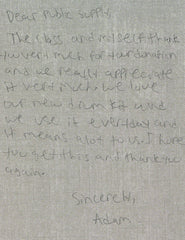 Dear public supply,
The class and myself thank
you very much for your donation
and we really appreciate
it very much. we love
our new drum kit and
we use it everyday and
it means alot to us. I hope
you get this and thank you
again.
Sincerely,
Adam